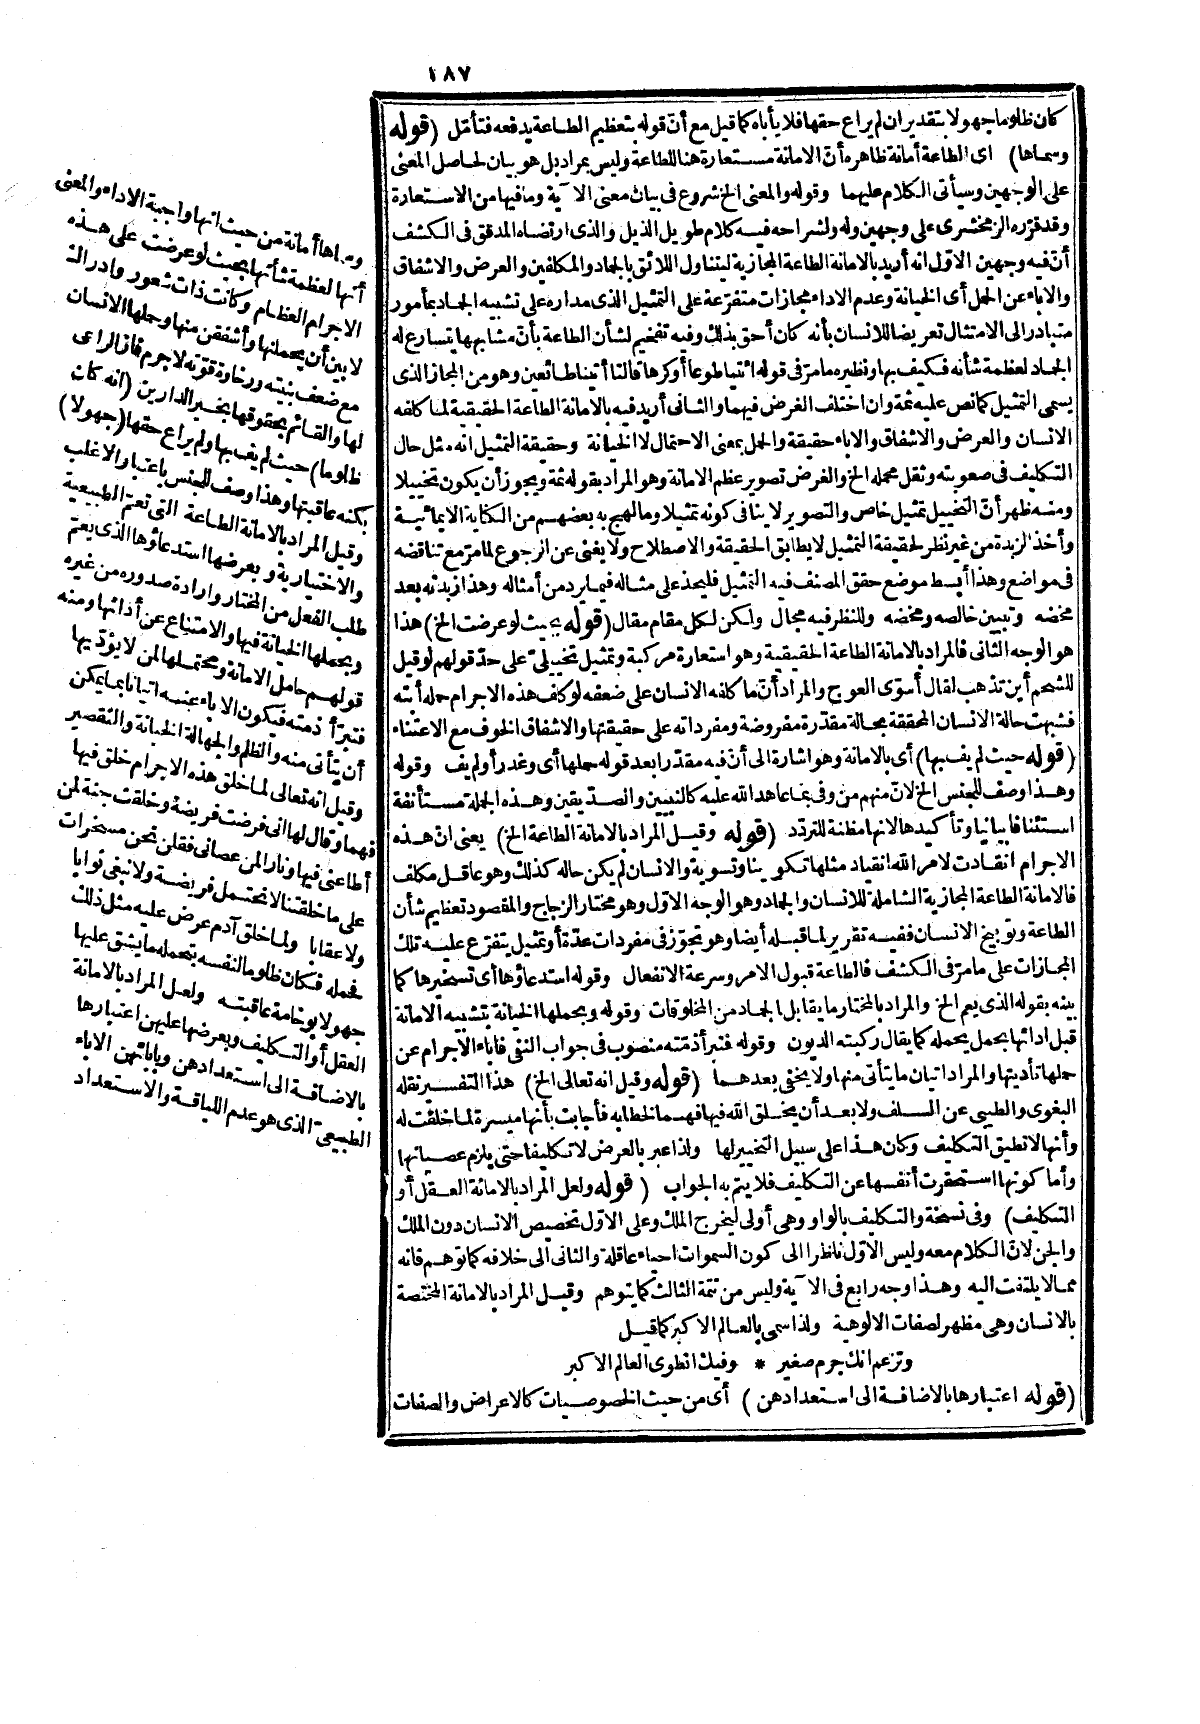 ١٨٧
كان ظلوما جهولا بتقدير ان لم يراع حقها فلا يأباه كما قيل مع أنّ قوله بتعظيم الطاعة يدفعه فتأمّل (قوله
وسماها) اى الطاعة أمانة ظاهره أنّ الامانة مستعارة هنا للطاعة وليس بمراد بل هو بيان لحاصل المعنى
على الوجهين وسيأتى الكلام عليهما وقوله والمعنى الخ شروع فى بيان معنى الآية وما فيها من الاستعارة
وقد قرّره الزمخشرى على وجهين وله ولشراحه فيه كلام طويل الذيل والذى ارتضاه المدقق فى الكشف
أنّ فيه وجهين الاوّل انه أريد بالامانة الطاعة المجازية ليتناول اللائق بالجماد والمكلفين والعرض والاشفاق
والاباء عن الحمل أى الخيانة وعدم الاداء مجازات متفرّعة على التمثيل الذى مداره على تشبيه الجماد بمأمور
متبادر الى الامتثال تعريضا للانسان بأنه كان أحق بذلك وفيه تفخيم لشأن الطاعة بأنّ مشابهها يتسارع له
الجماد لعظمة شأنه فكيف بها ونظيره ما مرّ فى قوله ائتيا طوعا أو كرها قالتا أتينا طائعين وهو من المجاز الذى
يسمى التمثيل كما نص عليه ثمة وان اختلف الغرض فيهما والثانى أريد فيه بالامانة الطاعة الحقيقية لما كلفه
الانسان والعرض والاشفاق والاباء حقيقة والحمل بمعنى الاحتمال لا الخيانة وحقيقة التمثيل انه مثل حال
التكليف فى صعوبته وثقل محمله الخ والغرض تصوير عظم الامانة وهو المراد بقوله ثمة ويجوز أن يكون تخييلا
ومنه ظهر أنّ التخييل تمثيل خاص والتصوير لا ينافى كونه تمثيلا وما لهج به بعضهم من الكناية الايمائية
وأخذ الزبدة من غير نظر لحقيقة التمثيل لا يطابق الحقيقة والاصطلاح ولا يغنى عن الرجوع لما مرّ مع تناقضه
فى مواضع وهذا أبسط موضع حقق المصنف فيه التمثيل فليحذ على مثاله فيما يرد من أمثاله وهذا زبدته بعد
مخضه وتبيين خالصه ومحضه وللنظر فيه مجال ولكن لكل مقام مقال (قوله بحيث لو عرضت الخ) هذا
هو الوجه الثانى فالمراد بالامانة الطاعة الحقيقية وهو استعارة مركبة وتمثيل تخييلىّ على حدّ قولهم لو قيل
للشحم أين تذهب لقال أسوّى العوج والمراد أنّ ما كلفه الانسان على ضعفه لو كلف هذه الاجرام حمله أبته
فشبهت حالة الانسان المحققة بحالة مقدّرة مفروضة ومفرداته على حقيقتها والاشفاق الخوف مع الاعتناء
(قوله حيث لم يف بها) أى بالامانة وهو اشارة الى أنّ فيه مقدّرا بعد قوله حملها أى وغدر أو لم يف وقوله
وهذا وصف للجنس الخ لانّ منهم من وفى بما عاهد الله عليه كالنبيين والصدّيقين وهذه الجملة مستأنفة
استئنافا بيانيا وتأكيدها لانها مظنة للتردّد (قوله وقيل المراد بالامانة الطاعة الخ) يعنى انّ هذه
الاجرام انقادت لامر الله انقياد مثلها تكوينا وتسوية والانسان لم يكن حاله كذلك وهو عاقل مكلف
فالامانة الطاعة المجازية الشاملة للانسان والجماد وهو الوجه الاوّل وهو مختار الزجاج والمقصود تعظيم شأن
الطاعة وتوبيخ الانسان ففيه تقرير لما قبله أيضا وهو تجوّز فى مفردات عدّة أو تمثيل يتفرّع عليه تلك
المجازات على ما مرّ فى الكشف فالطاعة قبول الامر وسرعة الانفعال وقوله استدعاؤها أى تسخيرها كما
بينه بقوله الذى يعم الخ والمراد بالمختار ما يقابل الجماد من المخلوقات وقوله وبحملها الخيانة بتشبيه الامانة
قبل ادائها بحمل يحمله كما يقال ركبته الديون وقوله فتبرأ ذمّته منصوب فى جواب النفى فاباء الاجرام عن
حملها تأديتها والمراد اتيان ما يتأتى منها ولا يخفى بعدهما (قوله وقيل انه تعالى الخ) هذا التفسير نقله
البغوى والطيبى عن السلف ولا بعد أن يخلق الله فيها فهما لخطابه فأجابت بأنها ميسرة لما خلقت له
وأنها لا تطيق التكليف وكان هذا على سبيل التخيير لها ولذا عبر بالعرض لا تكليفا حتى يلزم عصيانها
وأما كونها استحقرت أنفسها عن التكليف فلا يتم به الجواب (قوله ولعل المراد بالامانة العقل أو
التكليف) وفى نسخة والتكليف بالواو وهى أولى ليخرج الملك وعلى الاوّل تخصيص الانسان دون الملك
والجن لانّ الكلام معه وليس الاوّل ناظرا الى كون السموات احياء عاقلة والثانى الى خلافه كما توهم فانه
مما لا يلتفت اليه وهذا وجه رابع فى الآية وليس من تتمة الثالث كما يتوهم وقيل المراد بالامانة المختصة
بالانسان وهى مظهر لصفات الالوهية ولذا سمى بالعالم الاكبر كما قيل
وتزعم انك جرم صغير * وفيك انطوى العالم الاكبر
(قوله اعتبارها بالاضافة الى استعدادهن) أى من حيث الخصوصيات كالاعراض والصفات
وسماها أمانة من حيث انها واجبة الاداء والمعنى
أنها لعظمة شأنها بحيث لو عرضت على هذه
الاجرام العظام وكانت ذات شعور وادراك
لابين أن يحملنها وأشفقن منها وحملها الانسان
مع ضعف بنيته ورخاوة قوّته لاجرم فاز الراعى
لها والقائم بحقوقها بخير الدارين (انه كان
ظلوما) حيث لم يف بها ولم يراع حقها (جهولا)
بكنه عاقبتها وهذا وصف للجنس باعتبار الاغلب
وقيل المراد بالامانة الطاعة التى تعمّ الطبيعية
والاختيارية وبعرضها استدعاؤها الذى يعمّ
طلب الفعل من المختار وارادة صدوره من غيره
وبحملها الخيانة فيها والامتناع عن أدائها ومنه
قولهم حامل الامانة ومحتملها لمن لا يؤدّيها
فتبرأ ذمته فيكون الاباء عنه اتيانا بما يمكن
أن يتأتى منه والظلم والجهالة الخيانة والتقصير
وقيل انه تعالى لما خلق هذه الاجرام خلق فيها
فهما وقال لها انى فرضت فريضة وخلقت جنة لمن
أطاعنى فيها ونارا لمن عصانى فقلن نحن مسخرات
على ما خلقتنا لا نحتمل فريضة ولا نبغى ثوابا
ولا عقابا ولما خلق آدم عرض عليه مثل ذلك
فحمله فكان ظلوما لنفسه بتحمله ما يشق عليها
جهولا بوخامة عاقبته ولعل المراد بالامانة
العقل أو التكليف وبعرضها عليهن اعتبارها
بالاضافة الى استعدادهن وبابائهن الاباء
الطبيعىّ الذى هو عدم اللياقة والاستعداد